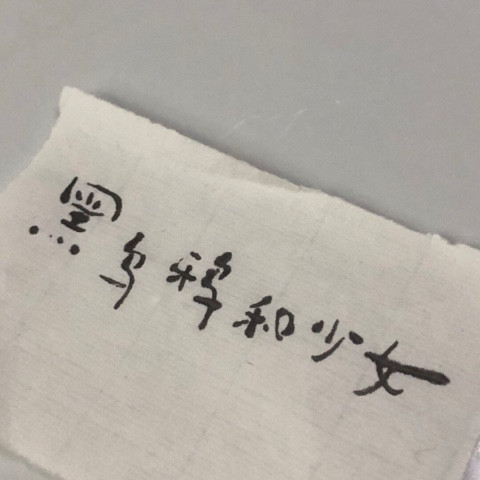 黑乌稺和少女